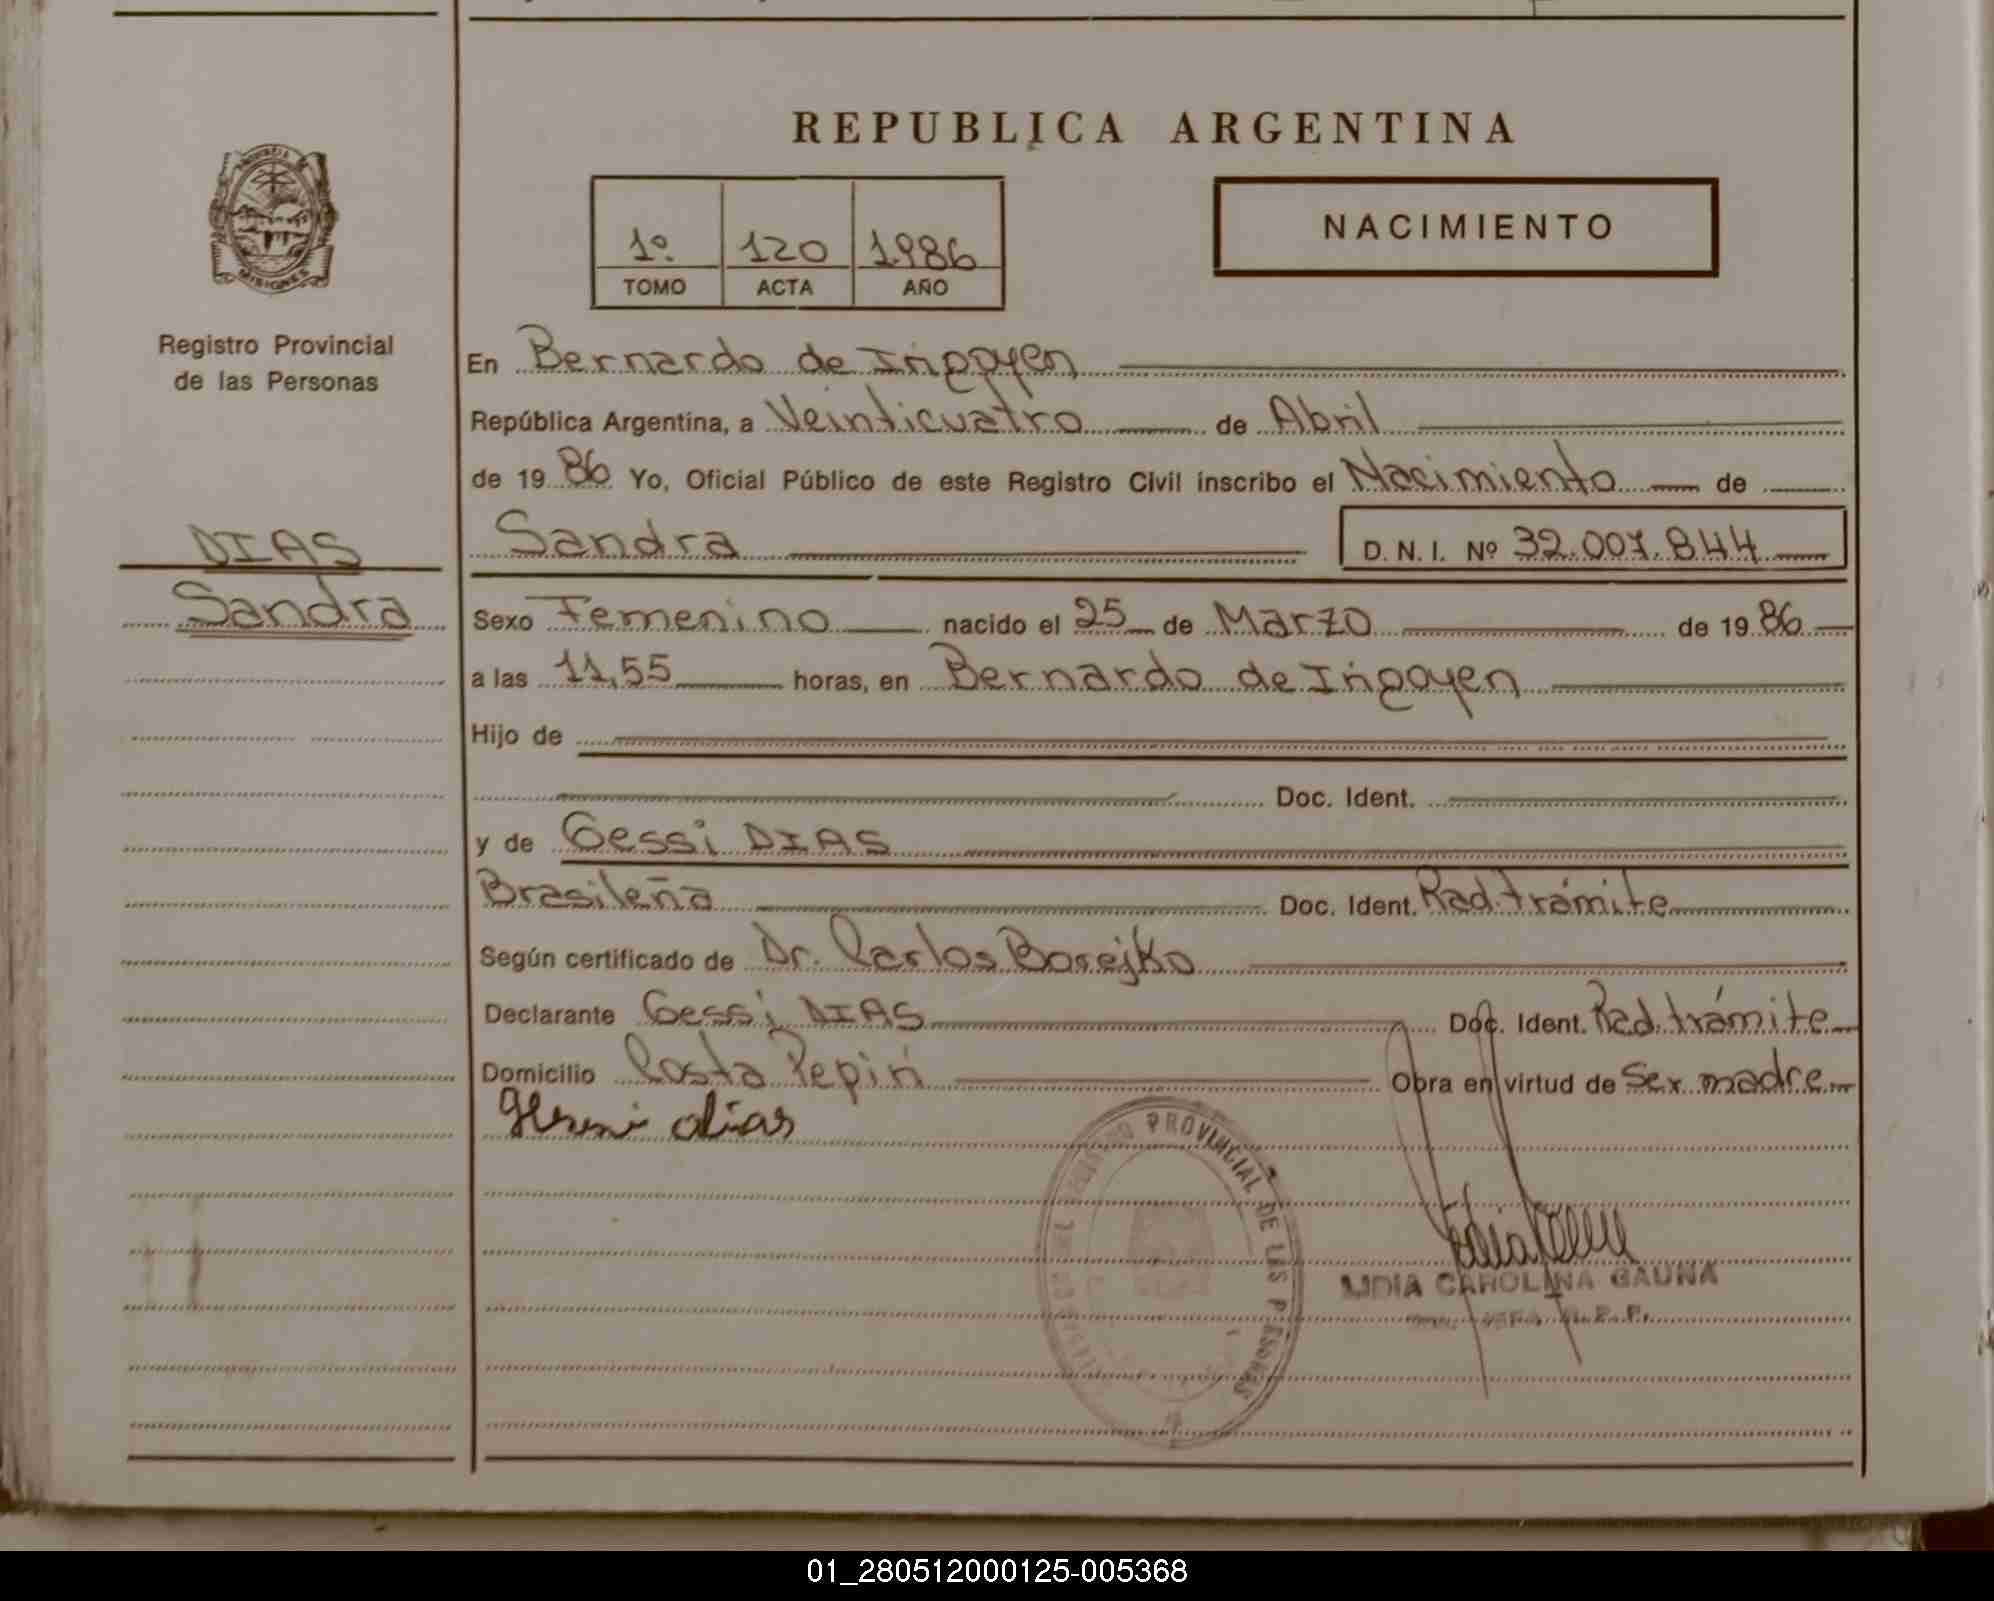 REPUBLICA ARGENTINA
1º 120 1986
TOMO ACTA AÑO
NACIMIENTO
Registro Provincial
de las Personas
DIAS
Sandra
En Bernardo de Irigoyen
República Argentina, a Veinticuatro de Abril
de 1986 Yo, Oficial Público de este Registro Civil inscribo el Nacimiento de
Sandra D. N. I. Nº 32.007.844
Sexo Femenino nacido el 25 de Marzo de 1986
a las 11,55 horas, en Bernardo de Irigoyen
Hijo de
Doc. Ident.
y de Gessi DIAS
Brasileña Doc. Ident. Rad. trámite
Según certificado de Dr. Carlos Borejko
Declarante Gessi DIAS Doc. Ident. Rad. trámite
Domicilio Costa Pepirí Obra en virtud de Ser madre
dias
PROVINCIAL DE LAS PERSONAS
LIDIA CAROLINA GAUNA
01_280512000125-005368